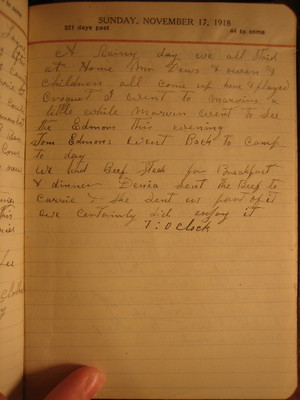 SUNDAY, NOVEMBER 17, 1918
321 days past
44 to come
A Rainy day we all Staid
at Home Mrs Dews &
Childrens all Come up here & played
Croquet I went to Marvins a
little while Marvin went to See
the Edmons this evening
Tom Edmons Went Back to Camp
to day
We had Beef Steak for Breakfast
& dinner Denia Sent the Beef to
Carrie & She Sent us part of it
we Certainly did enjoy it
7:0 Clock